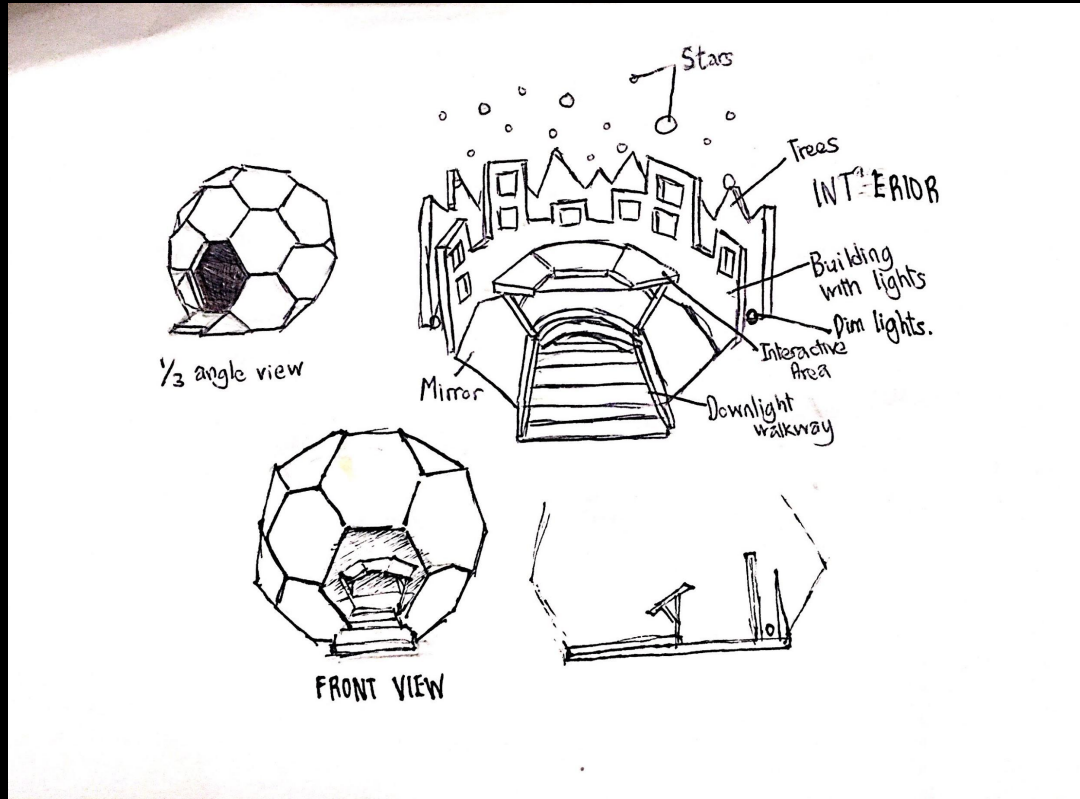 Stars
Trees
INTERIOR
Building
with lights
Dim lights.
Interactive
Area
Mirror
Downlight
walkway
1/3 angle view
FRONT VIEW